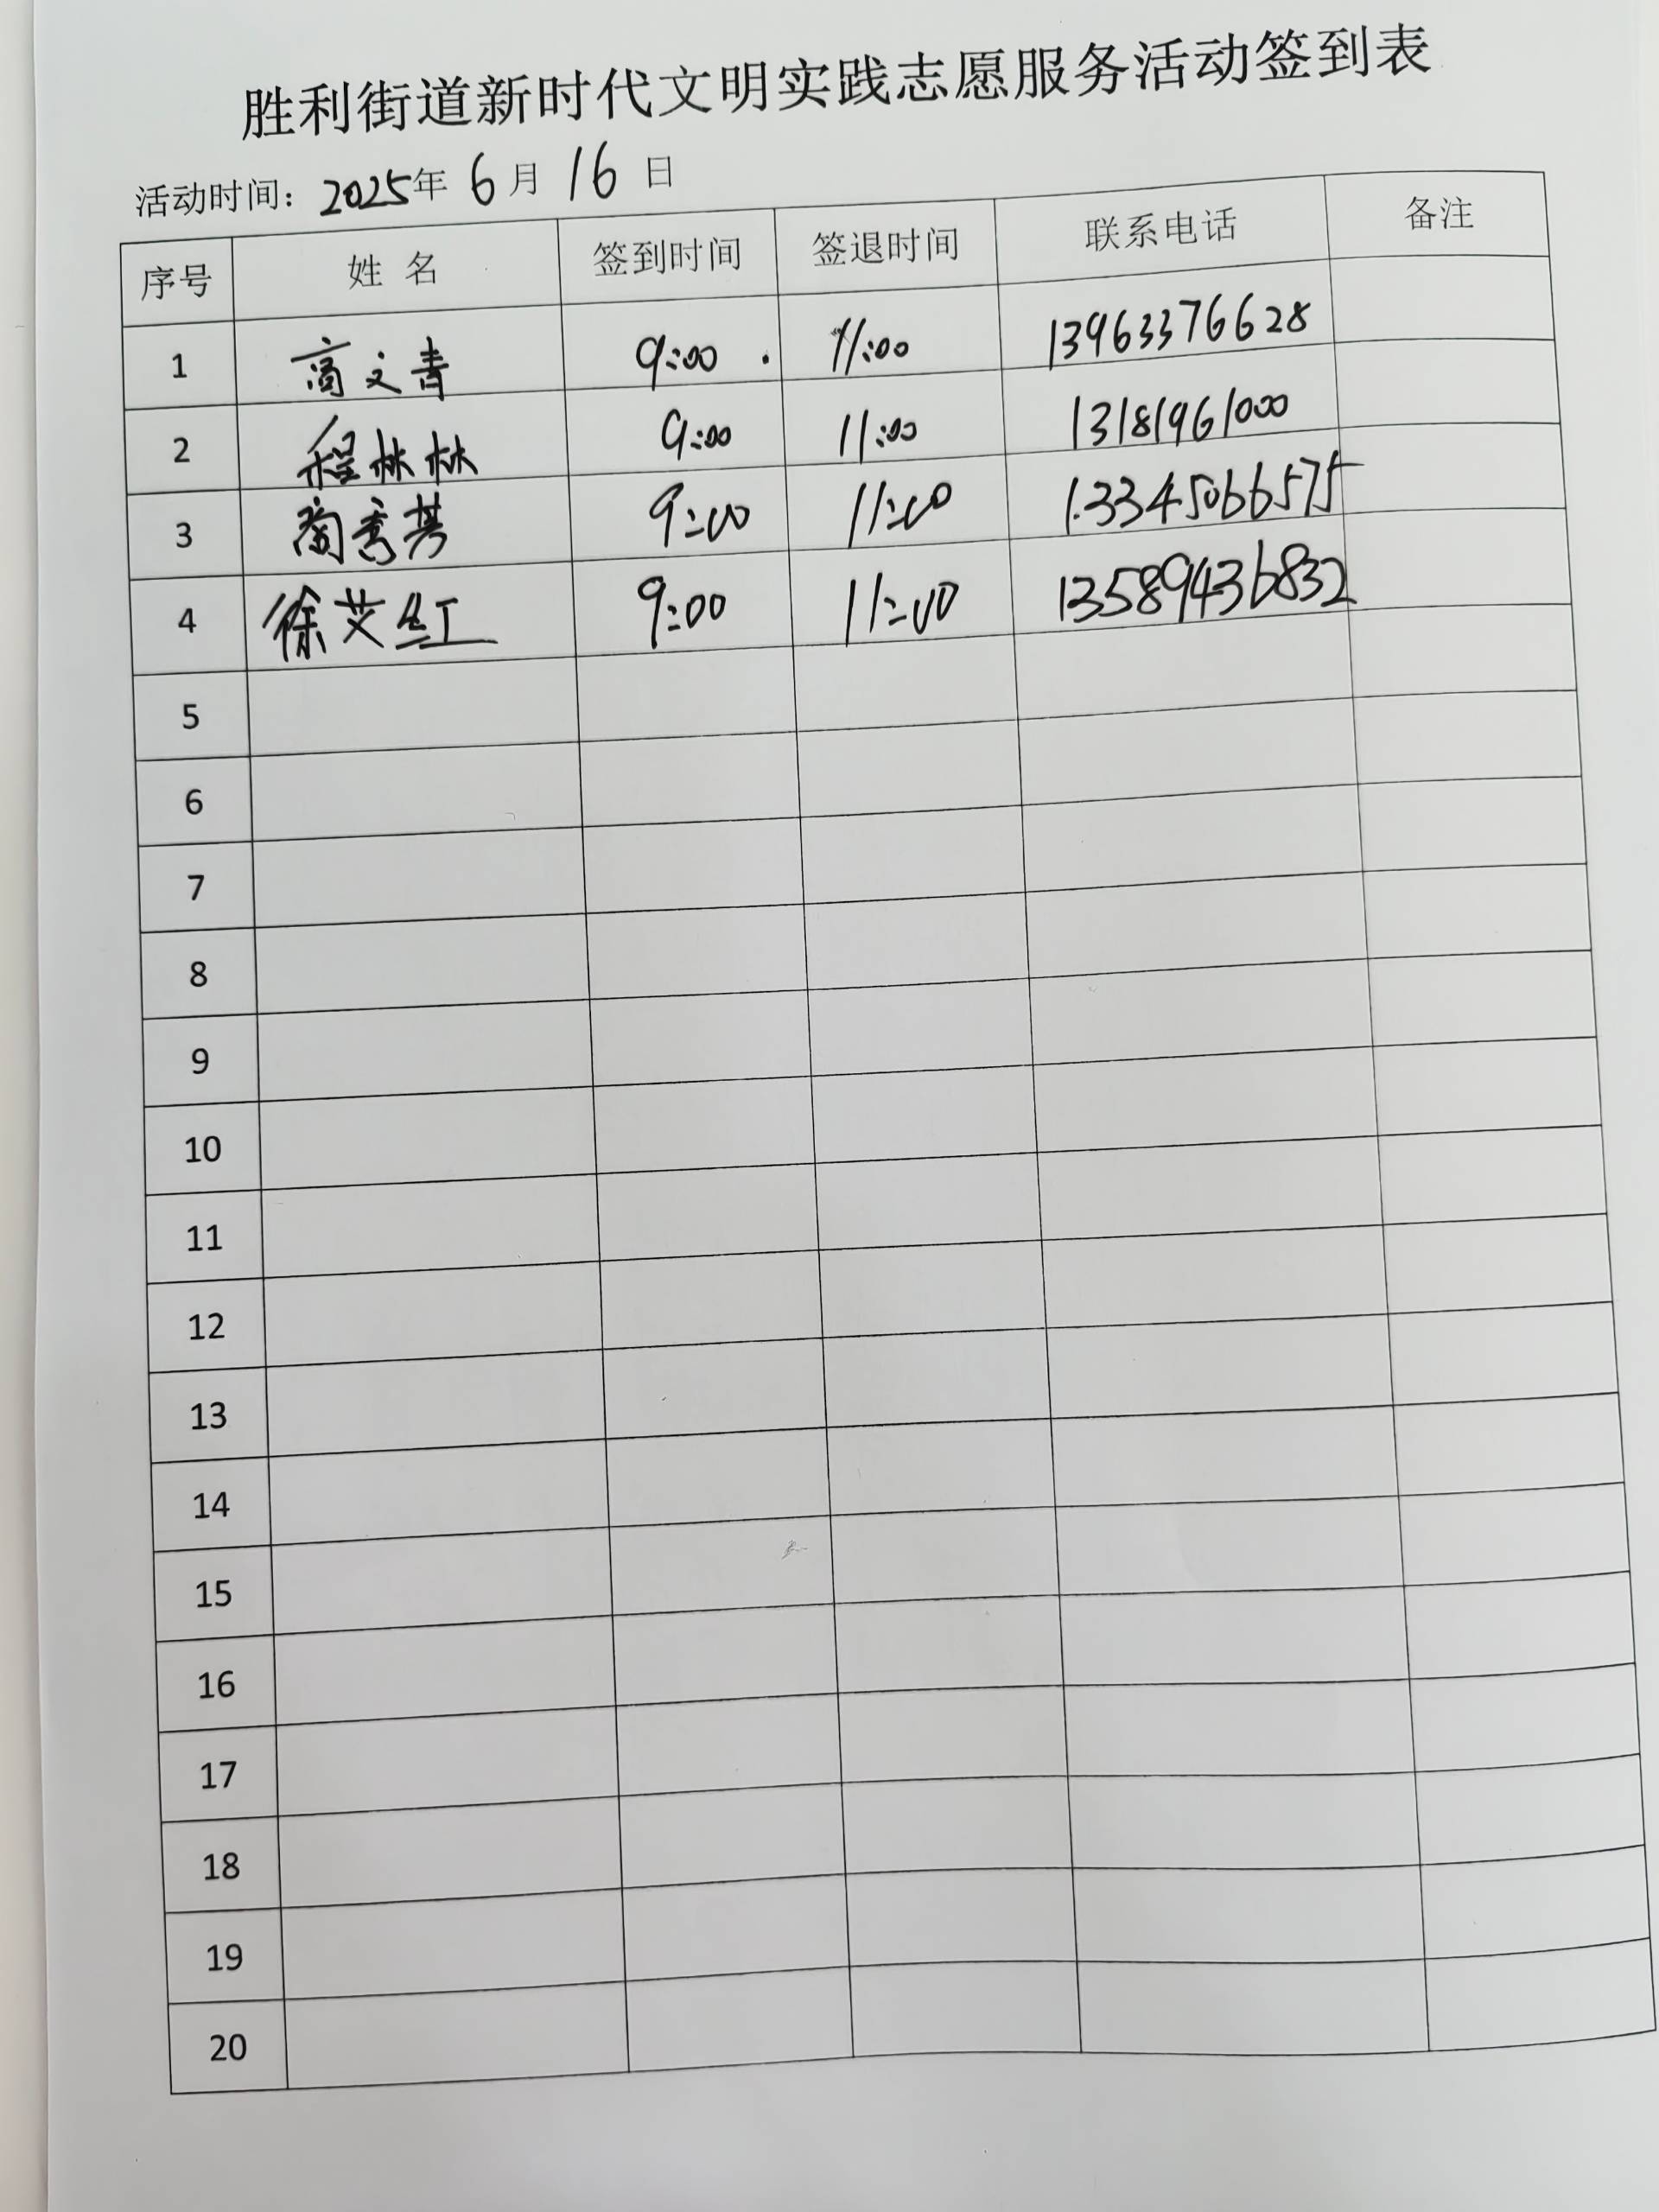 胜利街道新时代文明实践志愿服务活动签到表
活动时间：2025年 6 月 16 日
序号 姓 名 签到时间 签退时间 联系电话 备注
1 高文青 9:00 11:00 13963376628
2 程林林 9:00 11:00 13181961000
3 9:00 11:00 13345066575
4 徐艾红 9:00 11:00 13589436832
5
6
7
8
9
10
11
12
13
14
15
16
17
18
19
20